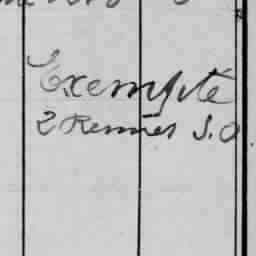 Exempté
2 Rennes S.O.